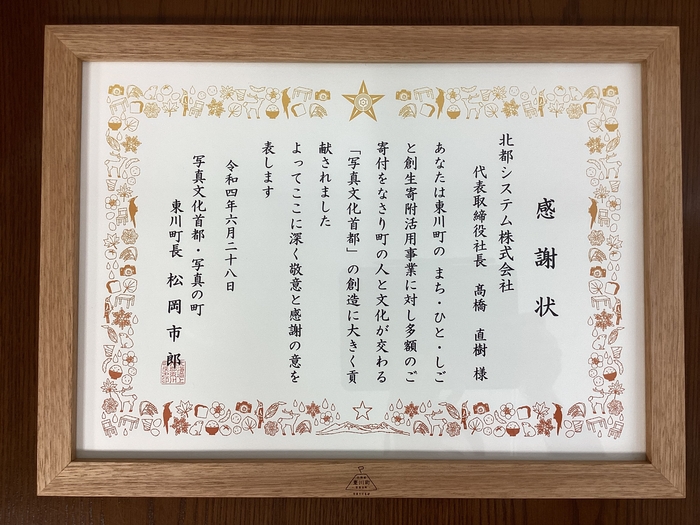 感謝状
北都システム株式会社
代表取締役社長 髙橋 直樹 様
あなたは東川町の まち・ひと・しご
と創生寄附活用事業に対し多額のご
寄付をなさり町の人と文化が交わる
「写真文化首都」の創造に大きく貢
献されました
よってここに深く敬意と感謝の意を
表します
令和四年六月二十八日
写真文化首都・写真の町
東川町長 松岡市郎